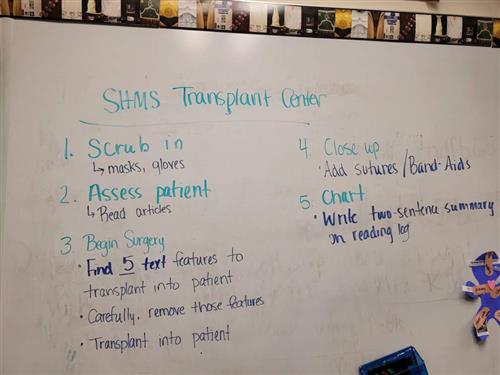 SHMS Transplant Center
1. Scrub in
↳ masks, gloves
2. Assess patient
↳ Read articles
3 Begin Surgery
• Find 5 text features to
transplant into patient
• Carefully remove those features
• Transplant into patient
4. Close up
• Add sutures/Band-Aids
5. Chart
• Write two-sentence summary
on reading log